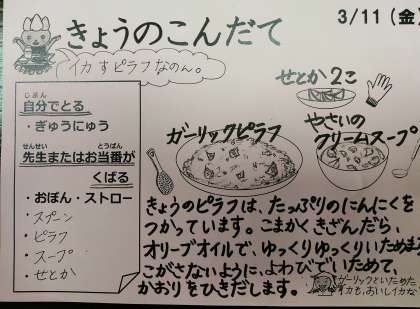 きょうのこんだて
3/11(金)
イカすピラフなのん。
せとか 2こ
じぶん
自分でとる
・ぎゅうにゅう
せんせい とうばん
先生またはお当番が
くばる
・おぼん・ストロー
・スプーン
・ピラフ
・スープ
・せとか
ガーリックピラフ
やさいの
クリームスープ
きょうのピラフは、たっぷりのにんにくを
つかっています。こまかくきざんだら、
オリーブオイルで、ゆっくりゆっくりいためます。
こがさないように、よわびでいためて、
かおりをひきだします。
ガーリックといためた
イカも、おいしイカな